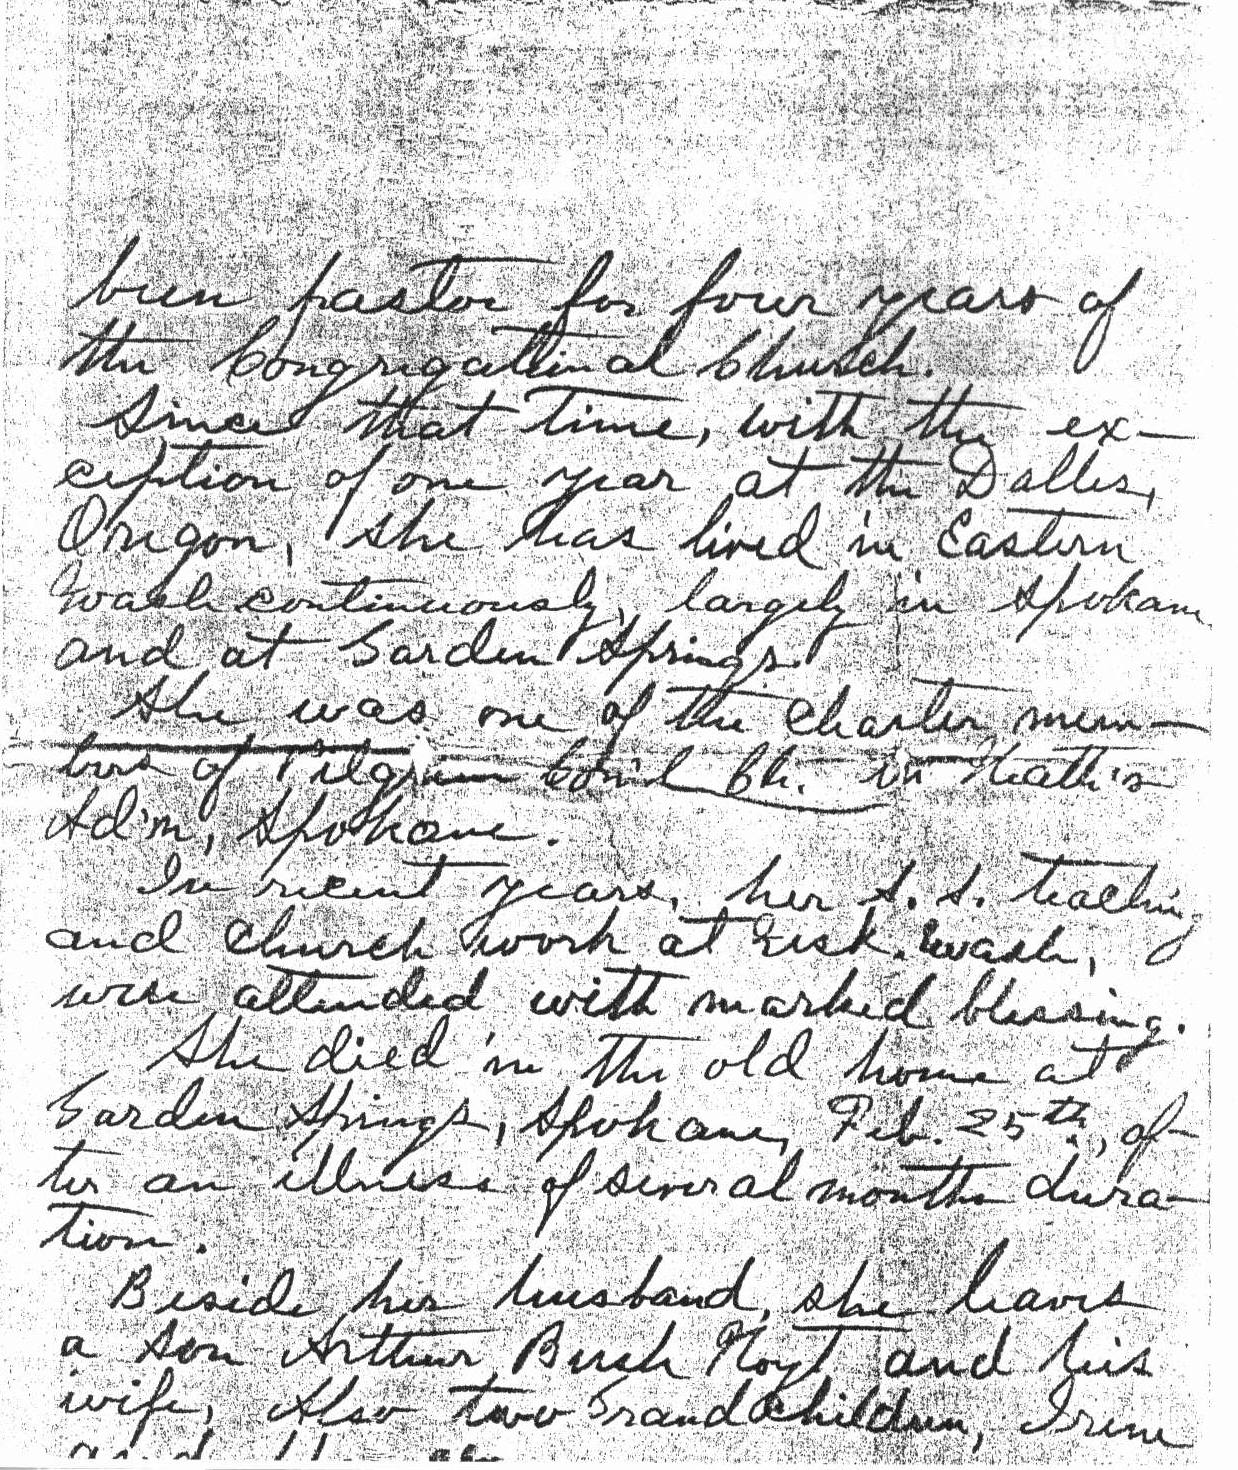 been pastor for four years of
the Congregational Church.
Since that time, with the ex-
ception of one year at the Dalles,
Oregon, she has lived in Eastern
Wash continuously, largely in Spokane
and at Garden Springs.
She was one of the Charter mem-
bers of Pilgrim Con'l Ch. in Heath's
Ad'n, Spokane.
In recent years, her S. S. teaching
and Church work at Eisk. Wash,
were attended with marked blessing.
She died in the old home at
Garden Springs, Spokane, Feb. 25th, af-
ter an illness of several months dura-
tion.
Beside her husband, she leaves
a son Arthur Bush Hoyt and his
wife, Also two Grandchildren, Irene
and